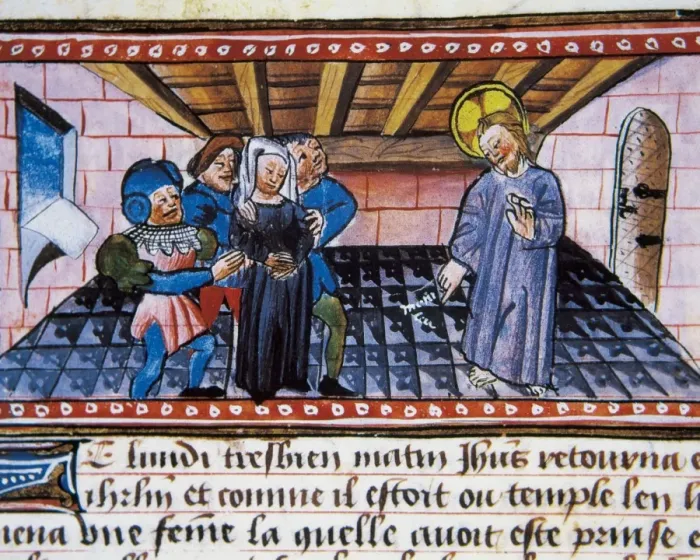 E lundi tresbien matin Jhūs retourna e
ihrlm̄ et comme il estoit ou temple len
mena vne fēme la quelle auoit este prinse